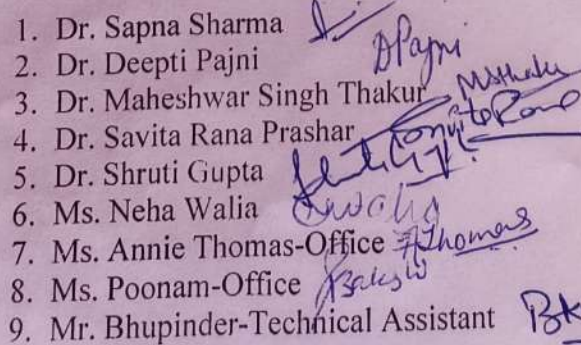 1. Dr. Sapna Sharma
2. Dr. Deepti Pajni DPajni
3. Dr. Maheshwar Singh Thakur MSThakur
4. Dr. Savita Rana Prashar
5. Dr. Shruti Gupta
6. Ms. Neha Walia
7. Ms. Annie Thomas-Office AThomas
8. Ms. Poonam-Office
9. Mr. Bhupinder-Technical Assistant BK